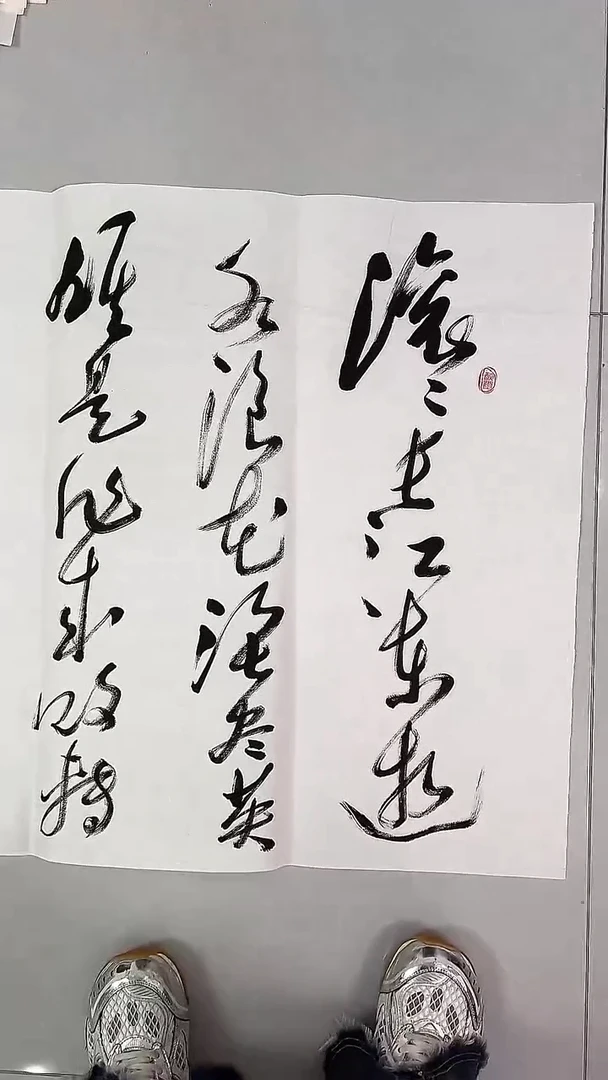 滚滚长江东逝
水浪花淘尽英
雄是非成败转